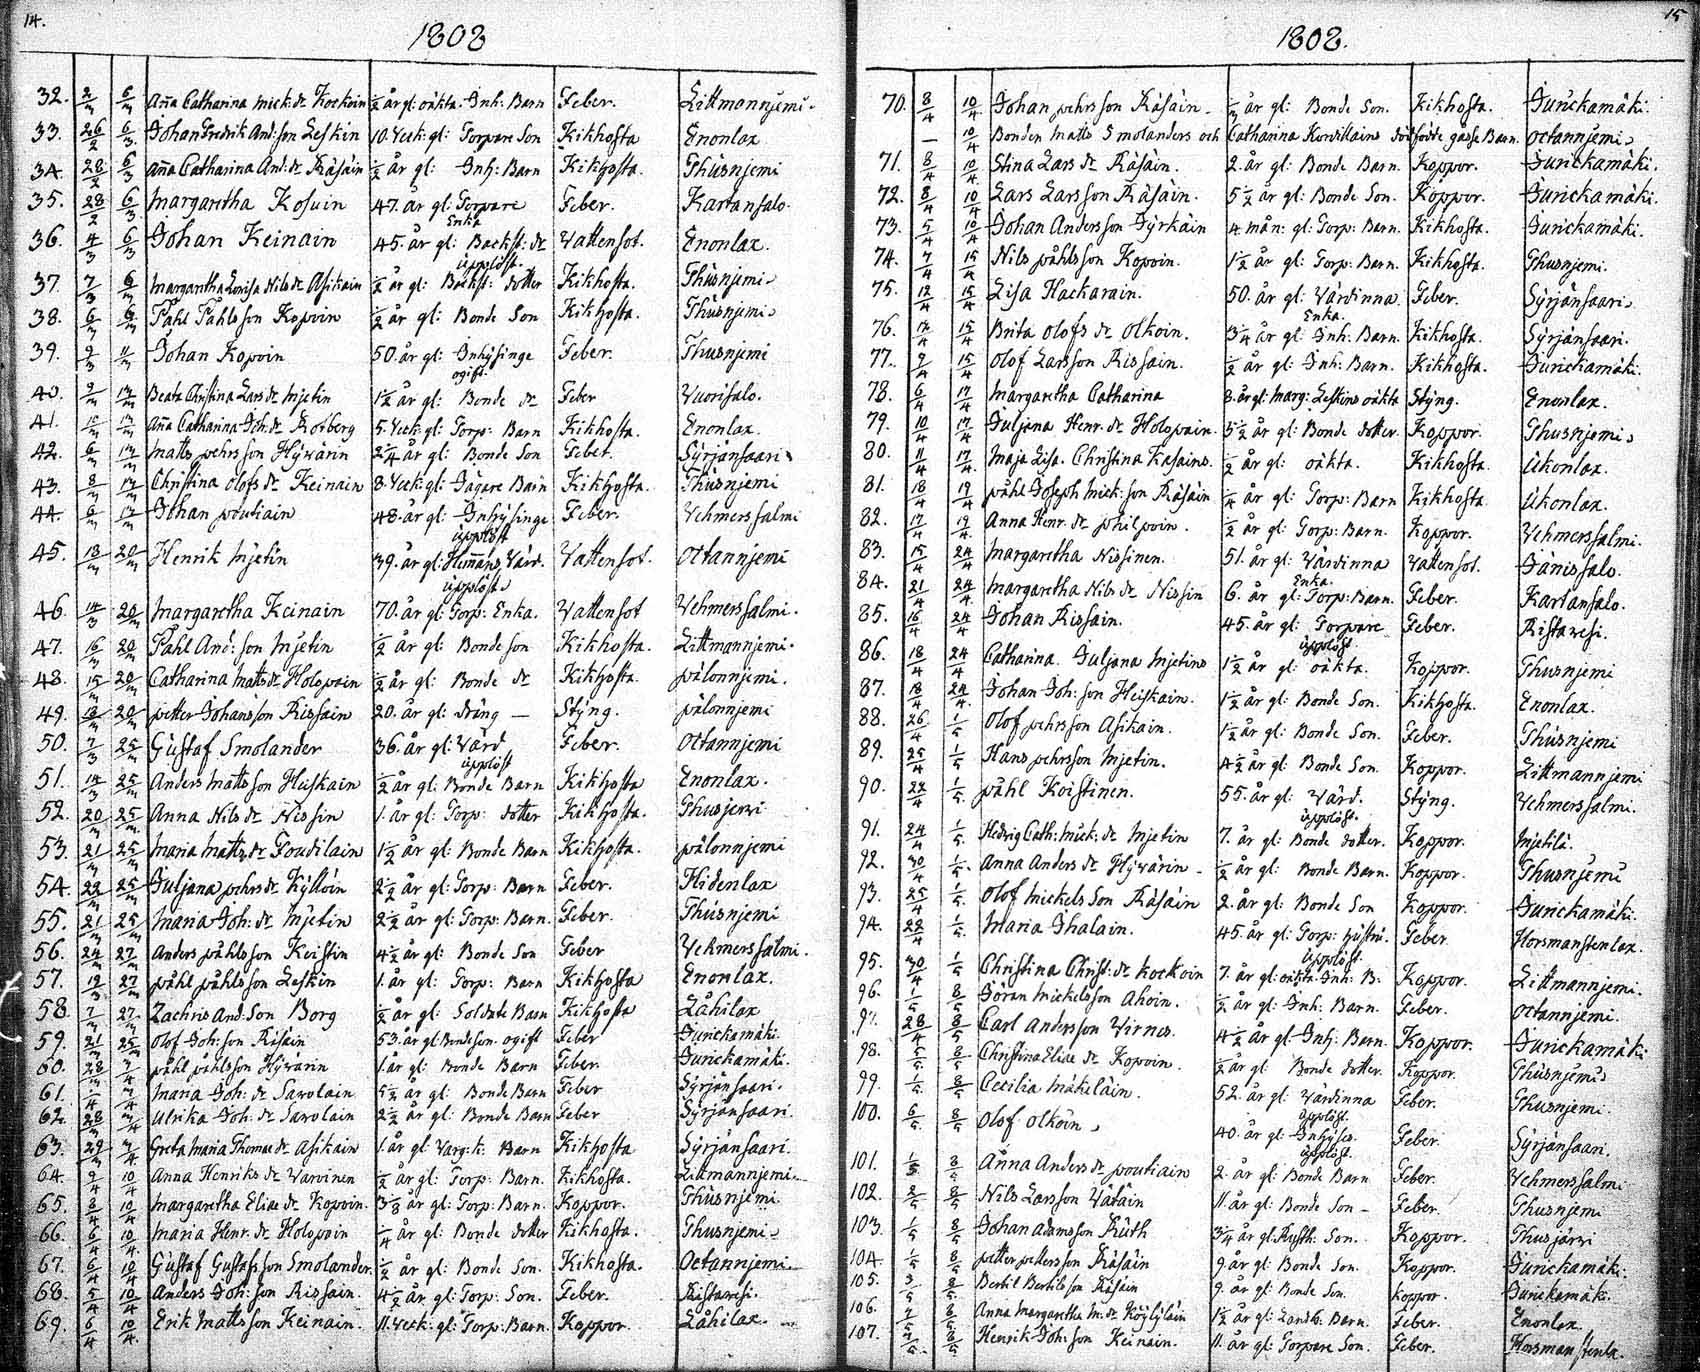 14.
1808
32. 2/3 6/3 Aña Catharina Mick: dr Kockoin ½ år gl: oäkta. Inh: Barn Feber. Littmannjemi.
33. 26/2 6/3 Johan Fredrik And: son Leskin 10. Veck: gl: Torpare Son Kikhosta Enonlax
34. 28/2 6/3 Aña Catharina And: dr Räsäin ½ år gl: Inh: Barn Kikhosta. Thusnjemi
35. 28/2 6/3 Margaretha Kosuin 47. år gl: Torpare Enka Feber. Kartansalo.
36. 4/3 6/3 Johan Keinain 45. år gl: Backst: dr upplöst. Vattensot. Enonlax.
37. 7/3 6/3 Margaretha Lovisa Nils dr Asikain ½ år gl: Backst: dotter Kikhosta. Thusnjemi
38. 6/3 6/3 Påhl Påhlsson Kopoin ½ år gl: Bonde Son Kikhosta. Thusnjemi
39. 9/3 11/3 Johan Kopoin 50. år gl: Inhysinge ogift. Feber. Thusnjemi
40. 9/3 13/3 Beata Christina Lars dr Mjetin 1½ år gl: Bonde dr Feber Vuorisalo.
41. 13/3 Aña Catharina Joh: dr Rosberg 5. Veck: gl: Torp: Barn Kikhosta. Enonlax.
42. 6/3 13/3 Matts Pehrsson Hyvärin 2¼ år gl: Bonde Son Feber. Syrjänsaari
43. 8/3 13/3 Christina Olofs dr Keinain 8. Veck: gl: Jägare Barn Kikhosta. Thusnjemi
44. 6/3 13/3 Johan Poutiain 48. år gl: Inhysinge upplöst Feber. Vehmerssalmi
45. 13/3 20/3 Henrik Mjetin 39. år gl: Hemmans Värd. upplöst. Vattensot. Octannjemi
46. 14/3 20/3 Margaretha Keinain 70. år gl: Torp: Enka. Vattensot Vehmerssalmi.
47. 16/3 20/3 Påhl And: son Mjetin ½ år gl: Bonde son Kikhosta. Littmannjemi.
48. 15/3 20/3 Catharina Matts dr Holopain ½ år gl: Bonde dr Kikhosta. Pälonnjemi.
49. 13/3 20/3 Petter Johansson Rissain 20. år gl: dräng — Styng. Pälonnjemi
50. 7/3 25/3 Gustaf Smolander 36. år gl: Värd upplöst Feber. Octannjemi
51. 14/3 25/3 Anders Mattsson Heiskain ½ år gl: Bonde Barn Kikhosta Enonlax.
52. 20/3 25/3 Anna Nils dr Nissin 1. år gl: Torp: dotter Kikhosta. Thusjerwi
53. 21/3 25/3 Maria Matts dr Toudilain 1½ år gl: Bonde Barn Kikhosta. Pälonnjemi
54. 22/3 25/3 Juljana Pehrs dr Kyllöin 2½ år gl: Torp: Barn Feber. Hidenlax
55. 21/3 25/3 Maria Joh: dr Mjetin 2½ år gl: Torp: Barn. Feber. Thusnjemi
56. 24/3 27/3 Anders Påhlsson Keistin 4½ år gl: Bonde Son Feber Vehmerssalmi.
57. 19/3 27/3 Påhl Påhlsson Leskin 1. år gl: Torp: Barn Kikhosta Enonlax.
58. 7/3 27/3 Zachris And: Son Borg ½ år gl: Soldate Barn Kikhosta Låhilax
59. 21/3 25/3 Olof Joh: son Räsäin 53. år gl: Bondeson ogift Feber Jurickamäki.
60. 28/3 3/4 Påhl Påhlsson Hyvärin 1. år gl: Bonde Barn Feber. Jurickamäki.
61. 1/4 3/4 Maria Joh: dr Savolain 5½ år gl: Bonde Barn Feber Syrjänsaari.
62. 28/3 3/4 Ulrika Joh: dr Savolain 2½ år gl: Bonde Barn Feber Syrjänsaari.
63. 29/3 3/4 Greta Maria Thomas dr Asikain 1. år gl Varg: k: Barn Kikhosta Syrjänsaari.
64. 9/4 10/4 Anna Henriks dr Varvinen ½ år gl: Torp: Barn. Kikhosta. Littmannjemi.
65. 8/4 10/4 Margaretha Elias dr Kopoin. år gl: Torp: Barn. Koppor. Thusnjemi
66. 6/4 10/4 Maria Henr: dr Holopain ¼ år gl: Bonde dotter Kikhosta. Thusnjemi
67. 6/4 10/4 Gustaf Gustafsson Smolander. ½ år gl: Bonde Son. Kikhosta. Octannjemi.
68. 5/4 10/4 Anders Joh: son Rissain. 4½ år gl: Torp: Son. Feber. Ristavesi.
69. 6/4 10/4 Erik Mattsson Keinain. 11. Veck: gl: Torp: Barn. Koppor. Låhilax.
15
1808.
70. 8/4 10/4 Johan Pehrsson Räsäin år gl: Bonde Son. Kikhosta. Jurickamäki.
— 10/4 Bonden Matts Smolanders och Catharina Korvikains dödfödde gosse Barn. Octannjemi
71. 8/4 10/4 Stina Lars dr Räsäin. 2. år gl: Bonde Barn. Koppor. Jurickamäki.
72. 8/4 10/4 Lars Larsson Räsäin. 5½ år gl: Bonde Son. Koppor. Jurickamäki.
73. 5/4 10/4 Johan Andersson Tyrkäin 4. mån: gl: Torp: Barn. Kikhosta. Jurickamäki.
74. 7/4 15/4 Nils Påhlsson Kopoin. 1½ år gl: Torp: Barn. Kikhosta. Thusnjemi.
75. 12/4 15/4 Lisa Hackarain. 50. år gl: Värdinna Enka. Feber. Syrjänsaari
76. 15/4 Brita Olofs dr Olkoin. ¾ år gl: Inh: Barn. Kikhosta. Syrjänsaari.
77. 9/4 15/4 Olof Larsson Rissain. ½ år gl: Inh: Barn. Kikhosta. Jurickamäki.
78. 6/4 17/4 Margaretha Catharina 8. år gl: Marg: Leskins oäkta Styng. Enonlax.
79. 10/4 17/4 Juljana Henr: dr Holopain. 5½ år gl: Bonde dotter. Koppor. Thusnjemi
80. 11/4 17/4 Maja Lisa. Christina Kasains. ½ år gl: oäkta. Kikhosta. Ukonlax.
81. 18/4 19/4 Påhl Joseph Mick: son Räsäin ¼ år gl: Torp: Barn Kikhosta Ukonlax.
82. 17/4 19/4 Anna Henr: dr Philpoin. ½ år gl: Torp: Barn. Koppor. Vehmerssalmi.
83. 15/4 24/4 Margaretha Nissinen. 51. år gl: Värdinna Enka. Vattensot. Jänissalo.
84. 21/4 24/4 Margaretha Nils dr Nissin 6. år gl: Torp: Barn. Feber. Kartansalo.
85. 16/4 24/4 Johan Rissain. 45. år gl: Torpare upplöst. Feber. Ristavesi.
86. 18/4 24/4 Catharina Juljana Mjetins 1½ år gl: oäkta. Koppor. Thusnjemi
87. 18/4 24/4 Johan Joh: son Heiskain. 1½ år gl: Bonde Son. Kikhosta. Enonlax.
88. 26/4 1/5 Olof Pehrsson Asikain. 1½ år gl: Bonde Son. Feber. Thusnjemi
89. 25/4 1/5 Hans Pehrsson Mjetin. 4½ år gl: Bonde Son. Koppor. Littmannjemi
90. 22/4 1/5 Påhl Koistinen. 55. år gl: Värd. upplöst. Styng. Vehmerssalmi.
91. 24/4 1/5 Hedvig Cath: Mick: dr Mjetin 7. år gl: Bonde dotter. Koppor. Mjetilä.
92. 30/4 1/5 Anna Anders dr Hyvärin ½ år gl: Bonde Barn. Koppor. Thusnjemi
93. 25/4 1/5 Olof Mickelsson Räsäin 2. år gl: Bonde Son Koppor. Jurickamäki.
94. 22/4 1/5 Maria Ihalain. 45. år gl: Torp: hustru. upplöst. Feber. Horsmanstenlax.
95. 30/4 1/5 Christina Christ: dr Kockoin 7. år gl: oäkta Inh: B: Koppor. Littmannjemi.
96. 1/5 8/5 Göran Mickelsson Ahoin. ½ år gl: Inh: Barn. Feber. Octannjemi.
97. 28/4 8/5 Carl Andersson Virnes. 4½ år gl: Inh: Barn. Koppor. Jurickamäki.
98. 5/5 8/5 Christina Elias dr Kopoin. ½ år gl: Bonde dotter. Koppor. Thusnjemi
99. 1/5 8/5 Cecilia Mäkeläin. 52. år gl: Värdinna upplöst. Feber. Thusnjemi.
100. 6/5 8/5 Olof Olkoin, 40. år gl: Inhyses. upplöst. Feber. Syrjänsaari.
101. 1/5 8/5 Anna Anders dr Poutiain 2. år gl: Bonde Barn Feber. Vehmerssalmi
102. 2/5 8/5 Nils Larsson Vätäin 11. år gl: Bonde Son - Feber. Thusnjemi
103. 1/5 8/5 Johan Adamsson Ruth ¾ år gl: Rusth: Son. Koppor. Thusjärwi
104. 1/5 8/5 Petter Pettersson Räsäin 9. år gl: Bonde Son. Koppor. Jurickamäki.
105. 3/5 8/5 Bertil Bertilsson Räsäin 9. år gl: Bonde Son. Koppor. Jurickamäki.
106. 8/5 Anna Margaretha M: dr Köylyläin 1½ år gl: Landb: Barn. Feber. Enonlax.
107. 8/5 Henrik Joh: son Keinain. 11. år gl: Torpare Son. Feber. Horsmanstenlx.